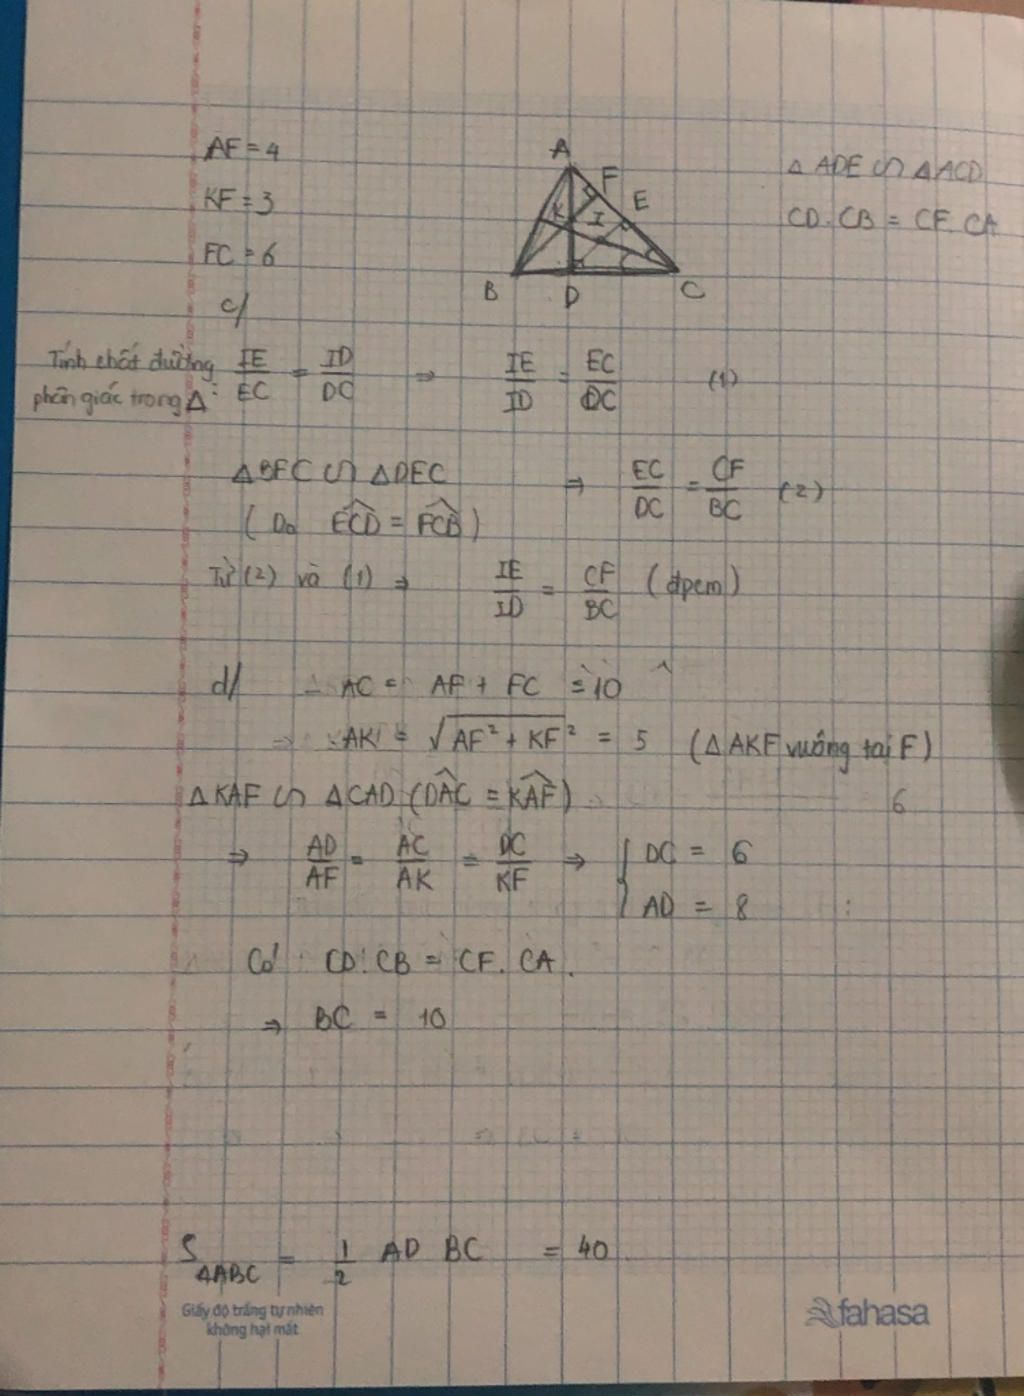 AF = 4
KF = 3
FC = 6
A
F
E
K
I
B
D
C
△ ADE ∽ △ ACD
CD.CB = CF.CA
c/
Tính chất đường phân giác trong △: IE/EC = ID/DC ⇒ IE/ID = EC/DC (1)
△BFC ∽ △DEC ⇒ EC/DC = CF/BC (2)
(Do ECD^ = FCB^)
Từ (2) và (1) ⇒ IE/ID = CF/BC (đpcm)
d/ AC = AF + FC = 10
⇒ AK = √AF² + KF² = 5 (△ AKF vuông tại F)
△KAF ∽ △CAD (DAC^ = KAF^)
6
⇒ AD/AF = AC/AK = DC/KF ⇒ { DC = 6
AD = 8
Có CD.CB = CF.CA.
⇒ BC = 10
S△ABC = 1/2 AD BC = 40
Giấy độ trắng tự nhiên
không hại mắt
fahasa